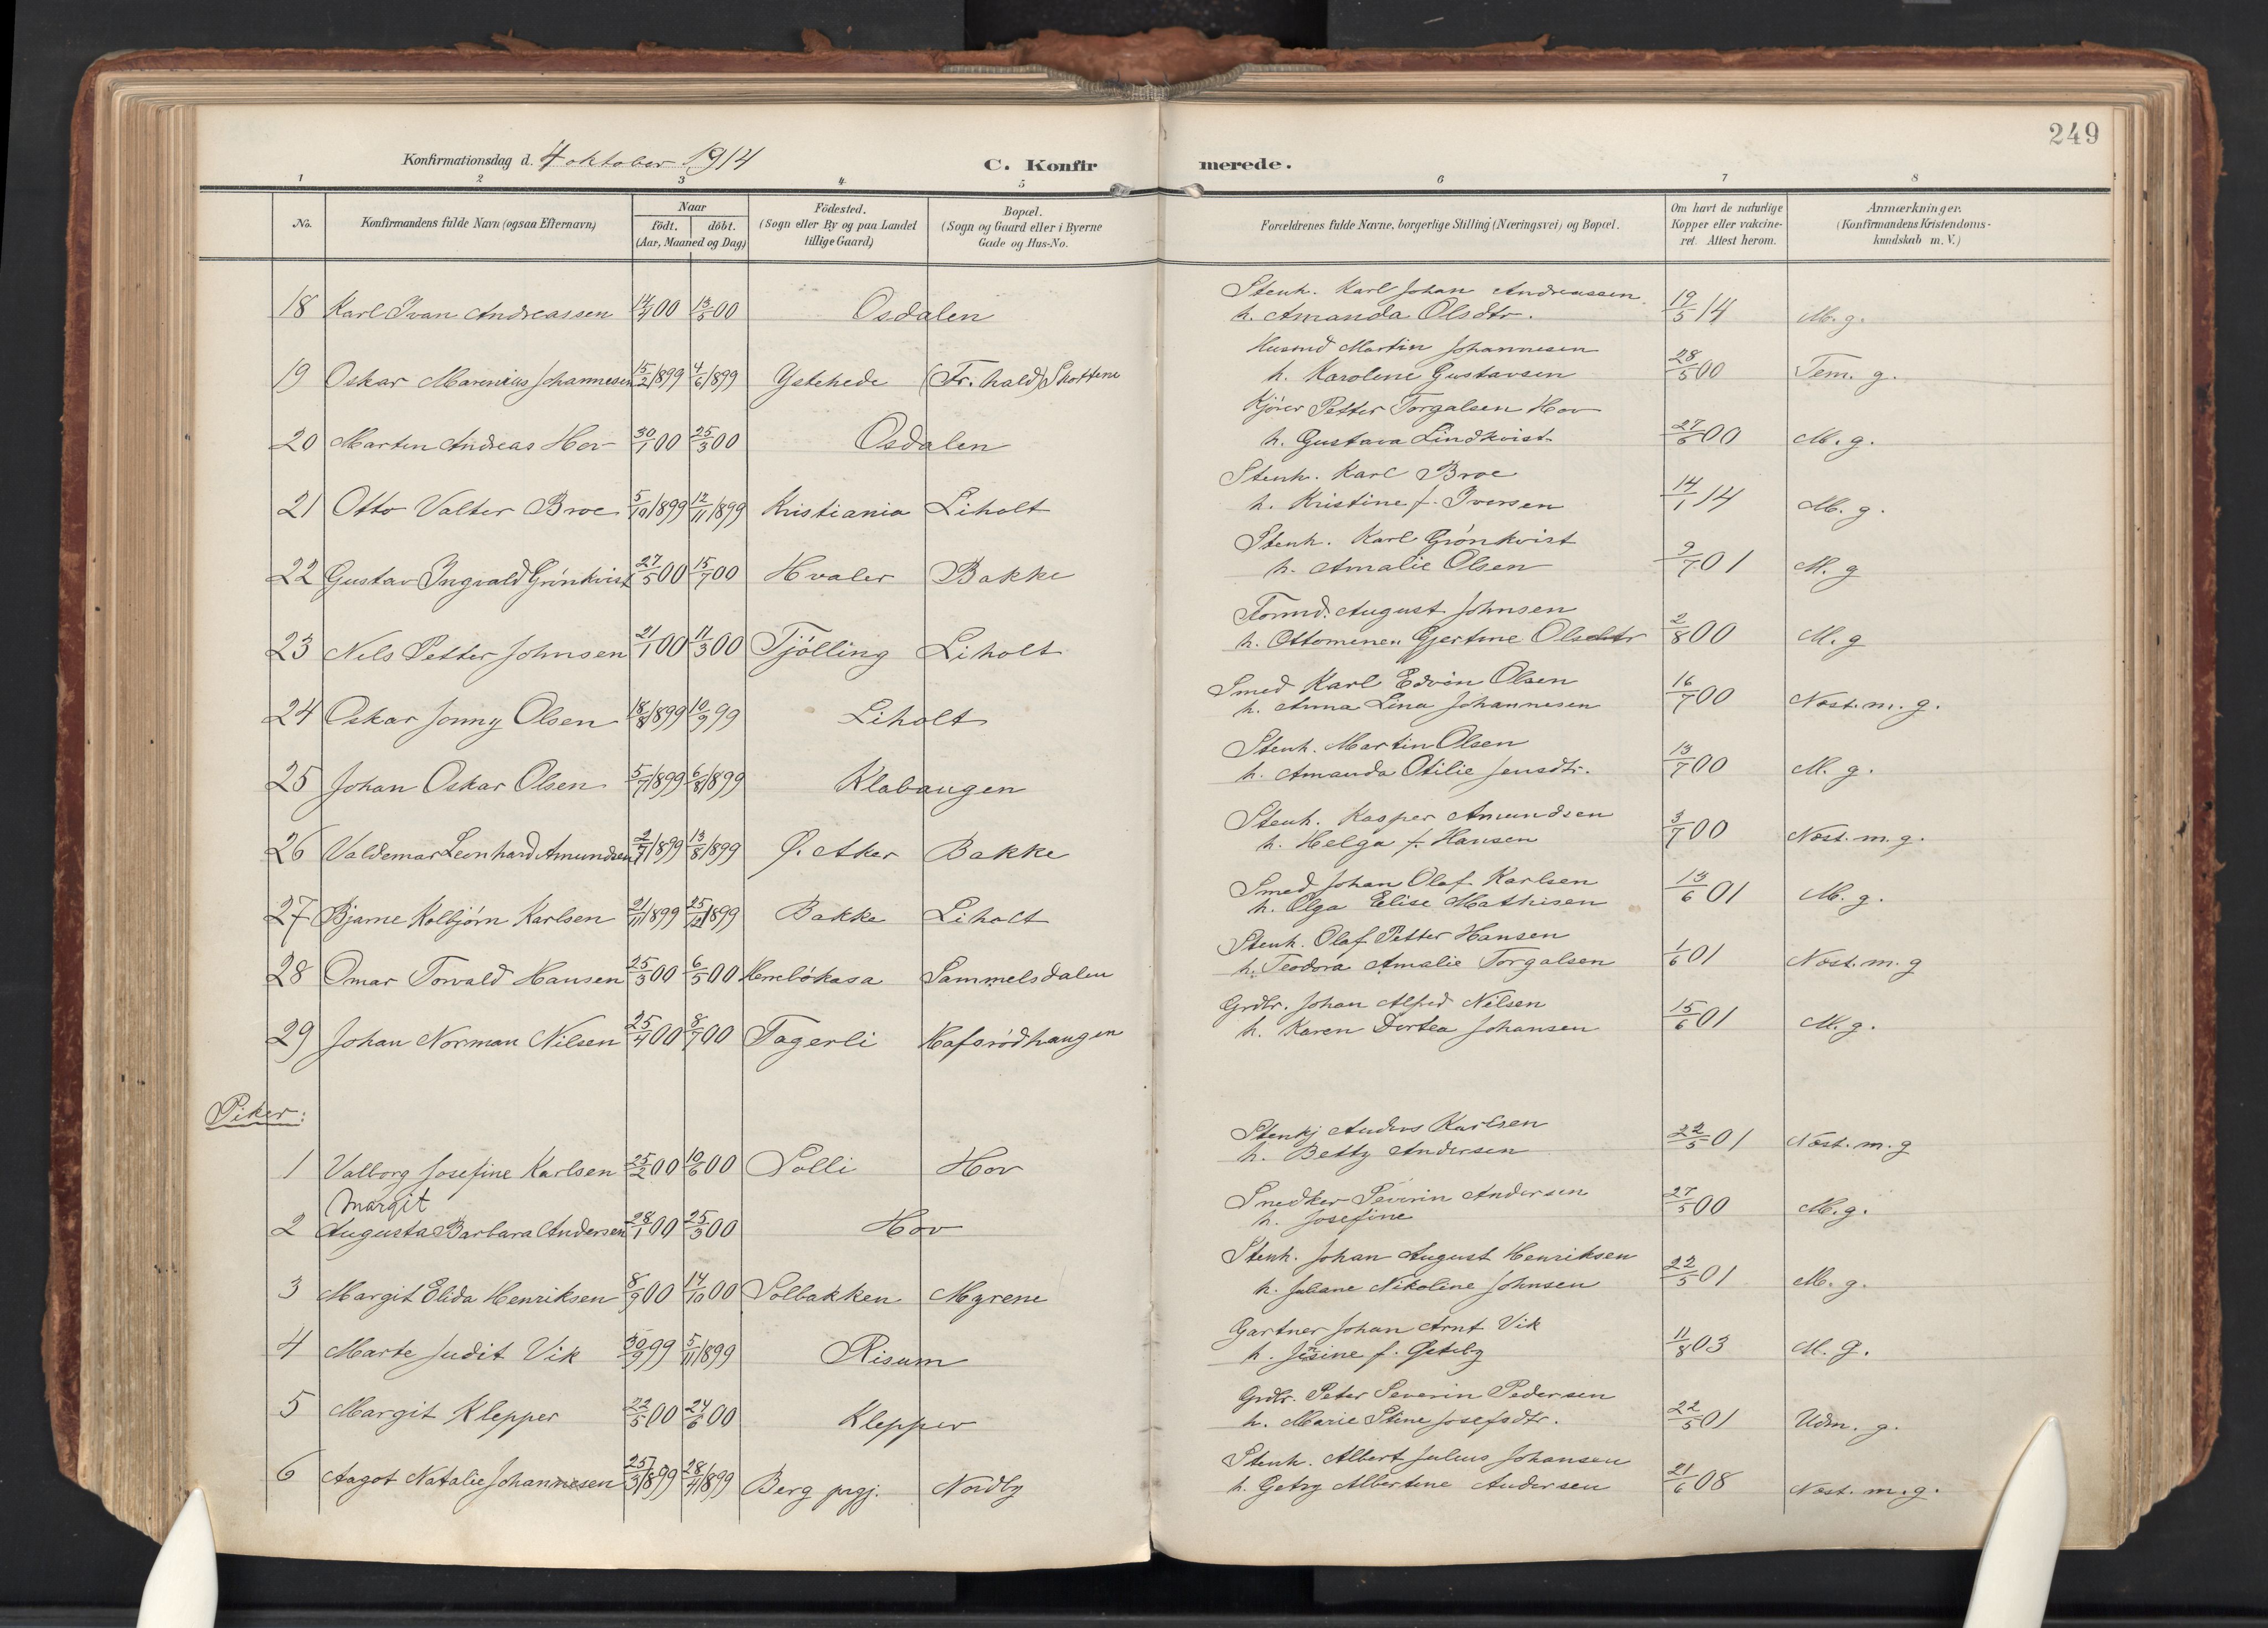 249
Konfirmationsdag d. 4 oktober 1914
C. Konfirmerede.
1 2 3 4 5 6 7 8
No. Konfirmandens fulde Navn (ogsaa Efternavn) Naar födt. döbt. (Aar, Maaned og Dag) Födested. (Sogn eller By og paa Landet tillige Gaard) Bopæl. (Sogn og Gaard eller i Byerne Gade og Hus-No. Forældrenes fulde Navne, borgerlige Stilling (Næringsvei) og Bopæl. Om havt de naturlige Kopper eller vakcineret. Attest herom. Anmærkninger. (Konfirmandens Kristendomskundskab m. V.)
18 Karl Ivan Andreassen 14/4 00 13/5 00 Osdalen Stenh. Karl Johan Andreassen h. Amanda Olsdtr. 19/5 14 M. g.
19 Oskar Marenius Johannesen 15/2 1899 4/6 1899 Ystehede (Fr.hald) Skottene Husmd Martin Johannesen h. Karoline Gustavsen 28/5 00 Tem. g.
20 Martin Andreas Hov 30/1 00 25/3 00 Osdalen Kjører Petter Torgalsen Hov h. Gustava Lindkvist 27/6 00 M. g.
21 Otto Valter Broe 5/10 1899 12/11 1899 Kristiania Liholt Stenh. Karl Broe h. Kristine f. Iversen 14/1 14 M. g.
22 Gustav Ingvald Grönkvist 27/5 00 15/7 00 Hvaler Bakke Stenh. Karl Grönkvist h. Amalie Olsen 9/7 01 M. g
23 Nils Petter Johnsen 21/1 00 11/3 00 Tjölling Liholt Formd. August Johnsen h. Ottomine Gjertine Olsdtr 2/8 00 M. g
24 Oskar Jonny Olsen 18/8 1899 10/9 99 Liholt Smed Karl Edvin Olsen h. Anna Lina Johannesen 16/7 00 Næst. m. g.
25 Johan Oskar Olsen 5/7 1899 6/8 1899 Klabaugen Stenh. Martin Olsen h. Amanda Otilie Jensdtr. 13/7 00 M. g.
26 Valdemar Leonhard Amundsen 2/7 1899 13/8 1899 Ø. Aker Bakke Stenh. Kasper Amundsen h. Helga f. Hansen 3/7 00 Næst. m. g.
27 Bjarne Kolbjörn Karlsen 21/11 1899 25/12 1899 Bakke Liholt Smed Johan Olaf Karlsen h. Olga Elise Mathisen 13/6 01 M. g.
28 Omar Torvald Hansen 25/3 00 6/5 00 Herrebökasa Sammelsdalen Stenh. Olaf Petter Hansen h. Teodora Amalie Torgalsen 1/6 01 Næst. m. g
29 Johan Norman Nilsen 25/4 00 8/7 00 Fagerli Hafsrödhaugen Grdbr. Johan Alfred Nilsen h. Karen Dortea Johansen 15/6 01 M. g.
Piker:
1 Valborg Josefine Karlsen 25/2 00 10/6 00 Solli Hov Stenhj Anders Karlsen h. Betty Andersen 22/5 01 Næst. m. g
Margit
2 Augusta Barbara Andersen 28/1 00 25/3 00 Hov Snedker Severin Andersen h. Josefine 27/5 00 M. g.
3 Margit Elida Henriksen 8/9 00 14/10 00 Solbakken Myrene Stenh. Johan August Henriksen h. Juliane Nikoline Johnsen 22/5 01 M. g.
4 Marte Judit Vik 30/9 99 5/11 1899 Risum Gartner Johan Arnt Vik h. Jensine f. 11/8 03 M. g.
5 Margit Klepper 22/5 00 24/6 00 Klepper Grdbr. Peter Severin Pedersen h. Marie Stine Josefsdtr. 22/5 01 Udm. g.
6 Aagot Natalie Johannesen 25/3 1899 28/4 1899 Berg prgj. Nordby Stenh. Albert Julius Johansen h. Getry Albertine Andersen 21/6 08 Næst. m. g.